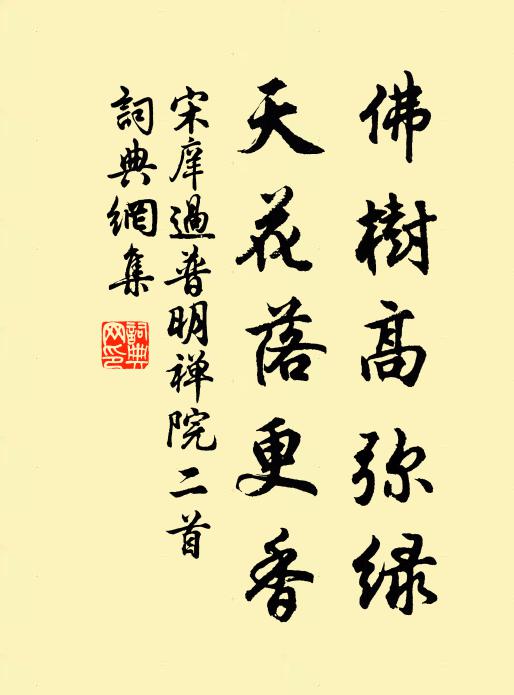 佛樹高弥緑
天花落更香
宋庠過普明禅院二首
詞典網集
詞典網印